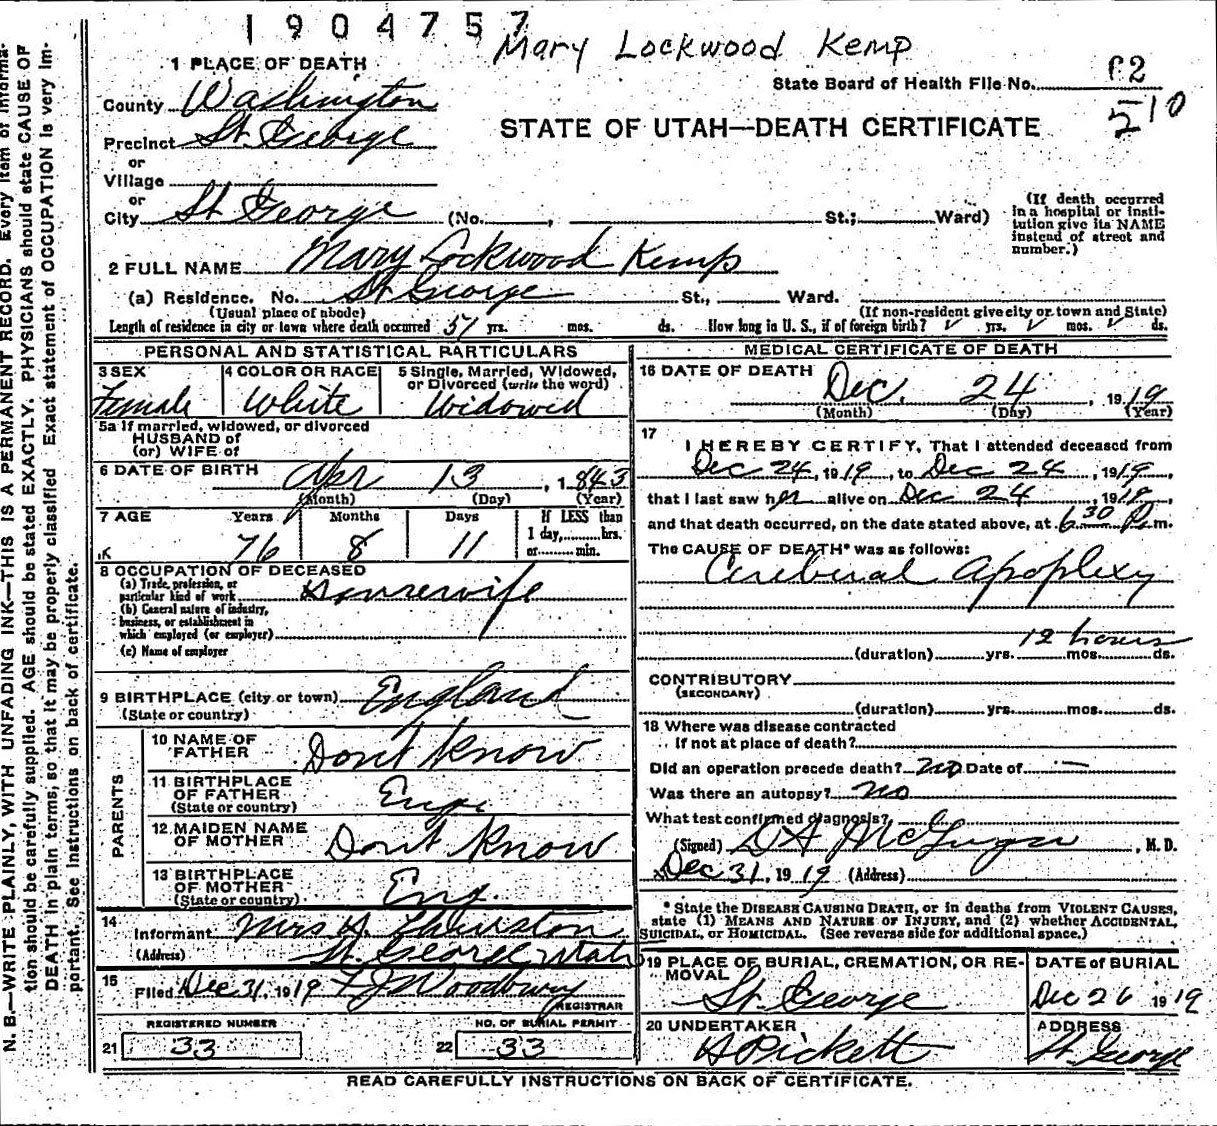 1904757
Mary Lockwood Kemp
1 PLACE OF DEATH
State Board of Health File No.
510
County Washington
STATE OF UTAH—DEATH CERTIFICATE
Precinct St. George
or
Village
or
City St George (No. , St.; Ward)
(If death occurred in a hospital or institution give its NAME instead of street and number.)
2 FULL NAME Mary Lockwood Kemp
(a) Residence. No. St. George St., Ward.
(Usual place of abode)
(If non-resident give city or town and State)
Length of residence in city or town where death occurred 57 yrs. mos. ds. How long in U. S., if of foreign birth? yrs. mos. ds.
PERSONAL AND STATISTICAL PARTICULARS
3 SEX
Female
4 COLOR OR RACE
White
5 Single, Married, Widowed, or Divorced (write the word)
Widowed
5a If married, widowed, or divorced
HUSBAND of
(or) WIFE of
6 DATE OF BIRTH Apr 13, 1843
(Month) (Day) (Year)
7 AGE Years Months Days
76 8 11
If LESS than
1 day, hrs.
or min.
8 OCCUPATION OF DECEASED
(a) Trade, profession, or particular kind of work Housewife
(b) General nature of industry, business, or establishment in which employed (or employer)
(c) Name of employer
9 BIRTHPLACE (city or town) England
(State or country)
PARENTS
10 NAME OF FATHER Dont Know
11 BIRTHPLACE OF FATHER Eng.
(State or country)
12 MAIDEN NAME OF MOTHER Dont Know
13 BIRTHPLACE OF MOTHER Eng.
(State or country)
14
Informant Mrs
(Address) St. George Utah
15
Filed Dec 31, 1919 F J Woodbury
REGISTRAR
REGISTERED NUMBER
21 33
NO. OF BURIAL PERMIT
22 33
MEDICAL CERTIFICATE OF DEATH
16 DATE OF DEATH Dec. 24, 1919
(Month) (Day) (Year)
17
I HEREBY CERTIFY, That I attended deceased from
Dec 24, 1919, to Dec 24, 1919,
that I last saw her alive on Dec 24, 1919,
and that death occurred, on the date stated above, at 6 30 P. m.
The CAUSE OF DEATH* was as follows:
Cerebral Apoplexy
12 hours
(duration) yrs. mos. ds.
CONTRIBUTORY
(SECONDARY)
(duration) yrs. mos. ds.
18 Where was disease contracted
If not at place of death?
Did an operation precede death? no Date of —
Was there an autopsy? no
What test confirmed diagnosis?
(Signed) D A McGregor, M. D.
Dec 31, 1919 (Address)
* State the DISEASE CAUSING DEATH, or in deaths from VIOLENT CAUSES,
state (1) MEANS AND NATURE OF INJURY, and (2) whether ACCIDENTAL,
SUICIDAL, or HOMICIDAL. (See reverse side for additional space.)
19 PLACE OF BURIAL, CREMATION, OR REMOVAL
St. George
DATE of BURIAL
Dec 26 1919
20 UNDERTAKER
A Pickett
ADDRESS
St George
READ CAREFULLY INSTRUCTIONS ON BACK OF CERTIFICATE.
N. B.—WRITE PLAINLY, WITH UNFADING INK—THIS IS A PERMANENT RECORD. Every item of informa-
tion should be carefully supplied. AGE should be stated EXACTLY. PHYSICIANS should state CAUSE OF
DEATH in plain terms, so that it may be properly classified. Exact statement of OCCUPATION is very im-
portant. See instructions on back of certificate.